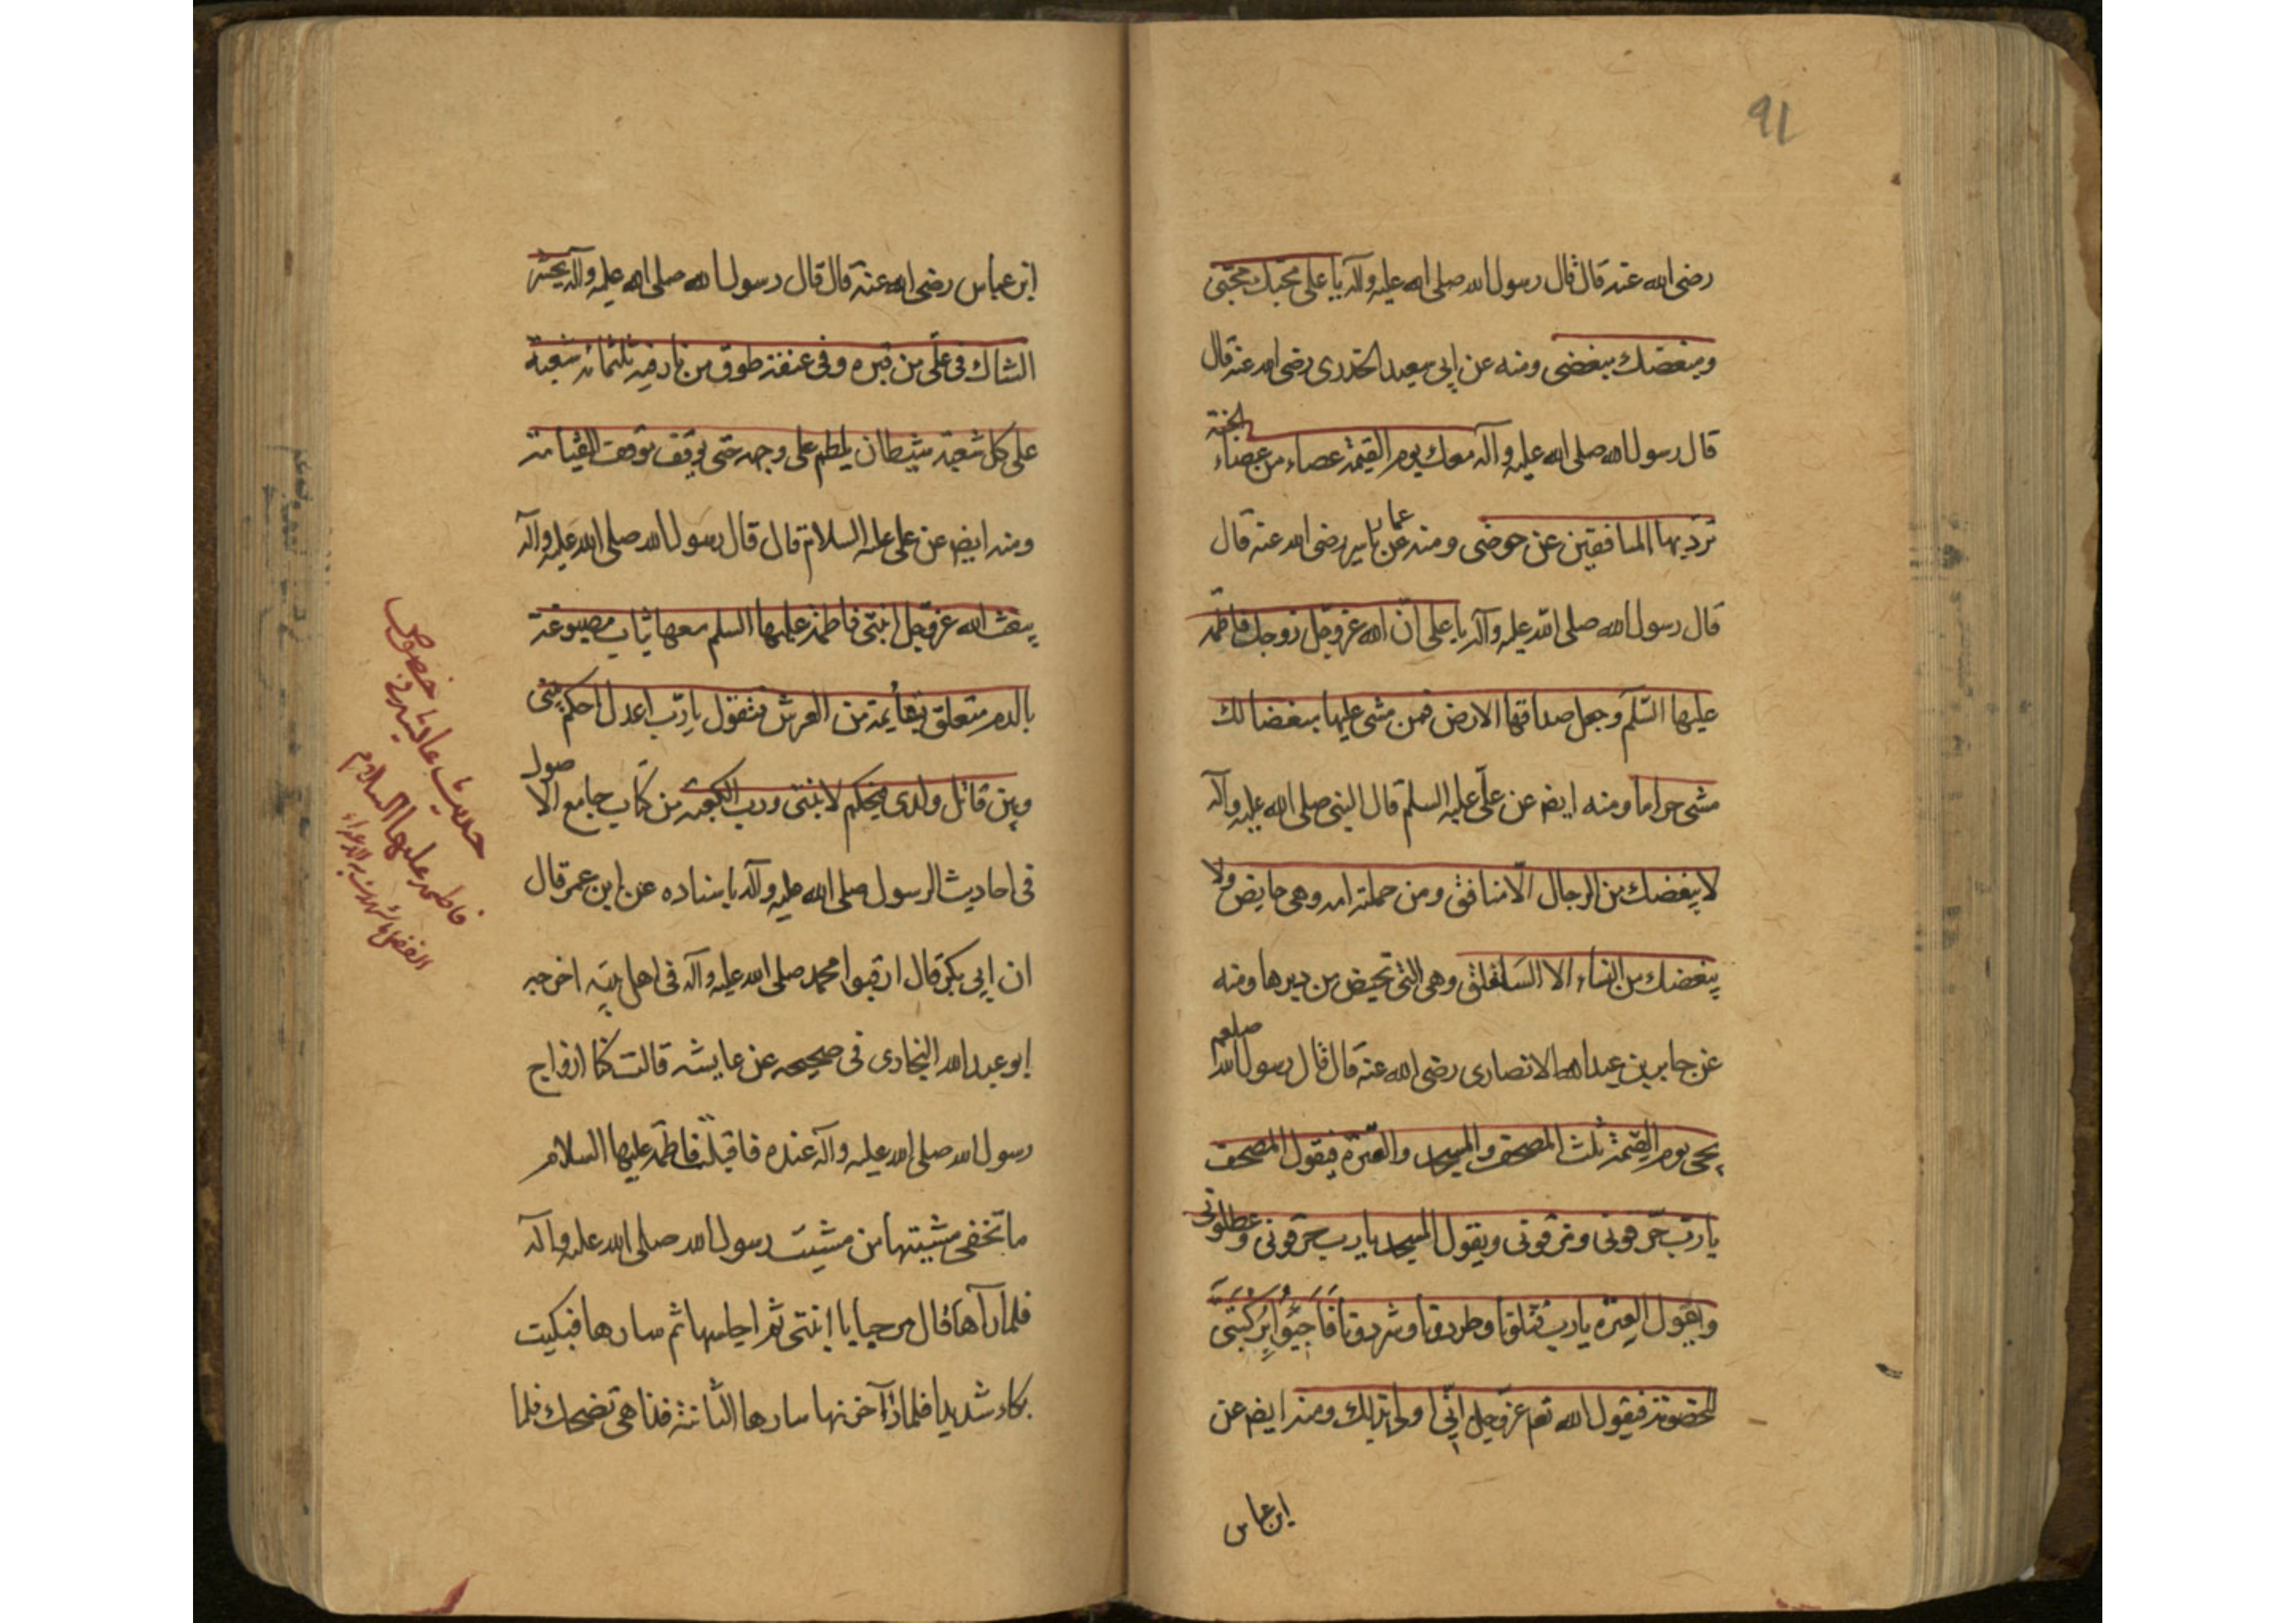 91
رضى الله عنه قال قال رسول الله صلى الله عليه وآله يا على محبك محبى
ومبغضك مبغضى ومنه عن ابى سعيد الخدرى رضى الله عنه قال
قال رسول الله صلى الله عليه وآله معك يوم القيمة عصاء من عصاء الجنة
تردبها المنافقين عن حوضى ومنه عن عمار ياسر رضى الله عنه قال
قال رسول الله صلى الله عليه وآله يا على انّ الله عزوجل زوجك فاطمة
عليها السّلم وجعل صداقها الارض فمن مشى عليها مبغضا لك
مشى حراما ومنه ايضا عن علّى عليه السلم قال النبى صلى الله عليه وآله
لا يبغضك من الرجال الّا منافق ومن حملته امه وهى حايض ولا
يبغضك من النساء الا السّلفلق وهى التى تحيض من دبرها ومنه
عن جابر بن عبدالله الانصارى رضى الله عنه قال قال رسول الله صلعم
يجئ يوم القيمة ثلث المصحف والمسجد والعترة فيقول المصحف
يا ربّ حرفونى ومزقونى ويقول المسجد يا رب خرقونى وعطلونى
ويقول العترة يا رب قتلونا وطردونا وشردونا فاجثوا بركبتى
للخصومة فيقول الله تع عزوجل انّى اولى بذلك ومنه ايضا عن
ابن عباس
ابن عباس رضى الله عنه قال قال رسول الله صلى الله عليه وآله يحشر
الشاك فى علّى من قبره وفى عنقه طوق من نار فيه ثلثمائه شعبة
على كل شعبة شيطان يلطم على وجهه حتى يوقف موقف القيامة
ومنه ايضا عن على عليه السلام قال قال رسول الله صلى الله عليه وآله
يبعث الله عزوجل ابنتى فاطمة عليها السلم معها ثياب مصبوغة
بالدم متعلق بقائمة من العرش فتقول يا ربّ اعدل احكم بينى
وبين قاتل ولدى فيحكم لابنتى ورب الكعبة من كتاب جامع الاصول
فى احاديث الرسول صلى الله عليه وآله باسناده عن ابن عمر قال
ان ابى بكر قال ارقبوا محمد صلى الله عليه وآله فى اهل بيته اخرجه
ابو عبد الله البخارى فى صحيحه عن عايشه قالت كنا ازواج
رسول الله صلى الله عليه وآله عنده فاقبلت فاطمة عليها السلام
ما تخفى مشيتها من مشيت رسول الله صلى الله عليه وآله
فلما رآها قال مرحبا يا ابنتى ثم اجلسها ثم سارها فبكيت
بكاء شديدا فلما راآ حزنها سارها الثانية فاذا هى تضحك فلما
حديث عايشه در خصوص
فاطمه عليها السلام
الفضل ما شهدت به الاعداء